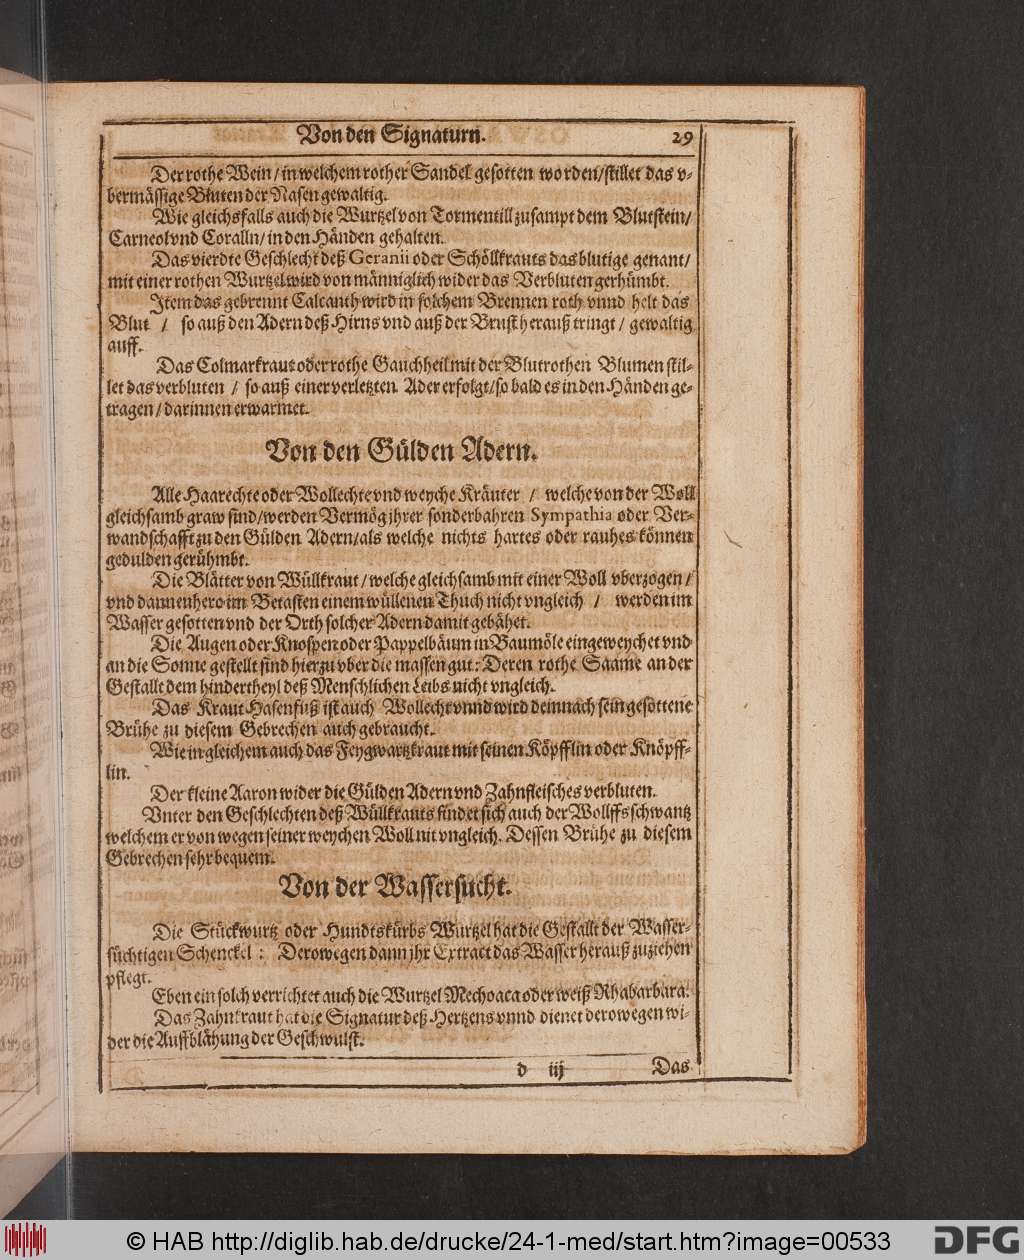 Von den Signaturn. 29
Der rothe Wein / in welchem rother Sandel gesotten worden / stillet das v-
bermässige Bluten der Nasen gewaltig.
Wie gleichsfalls auch die Wurtzel von Tormentill zusampt dem Blutstein /
Carneol vnd Coralln / in den Händen gehalten.
Das vierdte Geschlecht deß Geranii oder Schöllkrauts das blutige genant /
mit einer rothen Wurtzel wird von männiglich wider das Verbluten gerhümbt.
Item das gebrennt Calcanth wird in solchem Brennen roth vnnd helt das
Blut / so auß den Adern deß Hirns vnd auß der Brust herauß tringt / gewaltig
auff.
Das Colmarkraut oder rothe Gauchheil mit der Blutrothen Blumen stil-
let das verbluten / so auß einer verletzten Ader erfolgt / so bald es in den Händen ge-
tragen / darinnen erwarmet.
Von den Gülden Adern.
Alle Haarechte oder Wollechte vnd weyche Kräuter / welche von der Woll
gleichsamb graw sind / werden Vermög jhrer sonderbahren Sympathia oder Ver-
wandschafft zu den Gülden Adern / als welche nichts hartes oder rauhes können
gedulden gerühmbt.
Die Blätter von Wüllkraut / welche gleichsamb mit einer Woll vberzogen /
vnd dannenhero im Betasten einem wüllenen Thuch nicht vngleich / werden im
Wasser gesotten vnd der Orth solcher Adern damit gebähet.
Die Augen oder Knospen oder Pappelbäum in Baumöle eingeweychet vnd
an die Sonne gestellt sind hierzu vber die massen gut: Deren rothe Saame an der
Gestallt dem hindertheyl deß Menschlichen Leibs nicht vngleich.
Das Kraut Hasenfuß ist auch Wollecht vnnd wird demnach sein gesottene
Brühe zu diesem Gebrechen auch gebraucht.
Wie in gleichem auch das Feygwartzkraut mit seinen Köpfflin oder Knöpff-
lin.
Der kleine Aaron wider die Gülden Adern vnd Zahnfleisches verbluten.
Vnter den Geschlechten deß Wüllkrauts findet sich auch der Wollffsschwantz
welchem er von wegen seiner weychen Woll nit vngleich. Dessen Brühe zu diesem
Gebrechen sehr bequem.
Von der Wassersucht.
Die Stückwurtz oder Hundtskürbs Wurtzel hat die Gestallt der Wasser-
süchtigen Schenckel : Derowegen dann jhr Extract das Wasser herauß zuziehen
pflegt.
Eben ein solch verrichtet auch die Wurtzel Mechoaca oder weiß Rhabarbara.
Das Zahnkraut hat die Signatur deß Hertzens vnnd dienet derowegen wi-
der die Auffblähung der Geschwulst.
d iij Das
© HAB http://diglib.hab.de/drucke/24-1-med/start.htm?image=00533
DFG